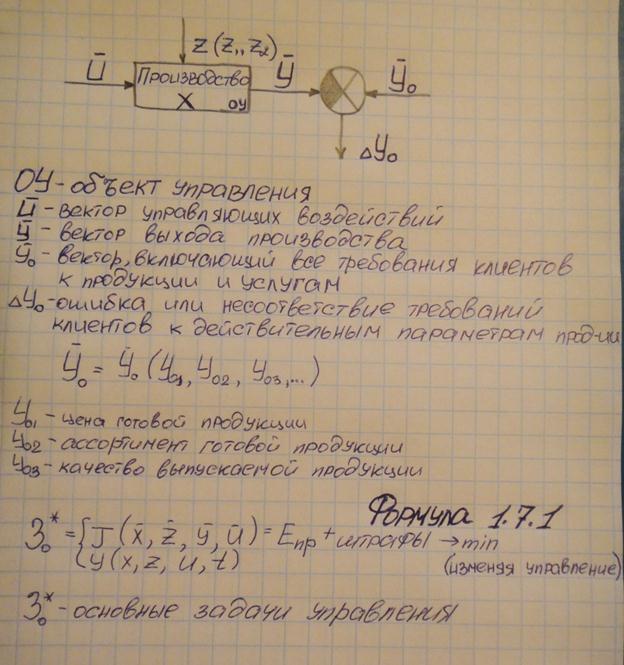 Z (Z₁, Z₂)
Ū Производство Ȳ Ȳ₀
X ОУ
ΔY₀
ОУ - объект управления
Ū - вектор управляющих воздействий
Ȳ - вектор выхода производства
Ȳ₀ - вектор, включающий все требования клиентов
к продукции и услугам
ΔY₀ - ошибка или несоответствие требований
клиентов к действительным параметрам прод-ии
Ȳ₀ = Ȳ₀ (У₀₁, У₀₂, У₀₃, ...)
У₀₁ - цена готовой продукции
У₀₂ - ассортимент готовой продукции
У₀₃ - качество выпускаемой продукции
Формула 1.7.1
З₀* = { J (x̄, z̄, ȳ, ū) = Eпр + штрафы → min
{ y (x, z, u, t) (изменяя управление)
З₀* - основные задачи управления